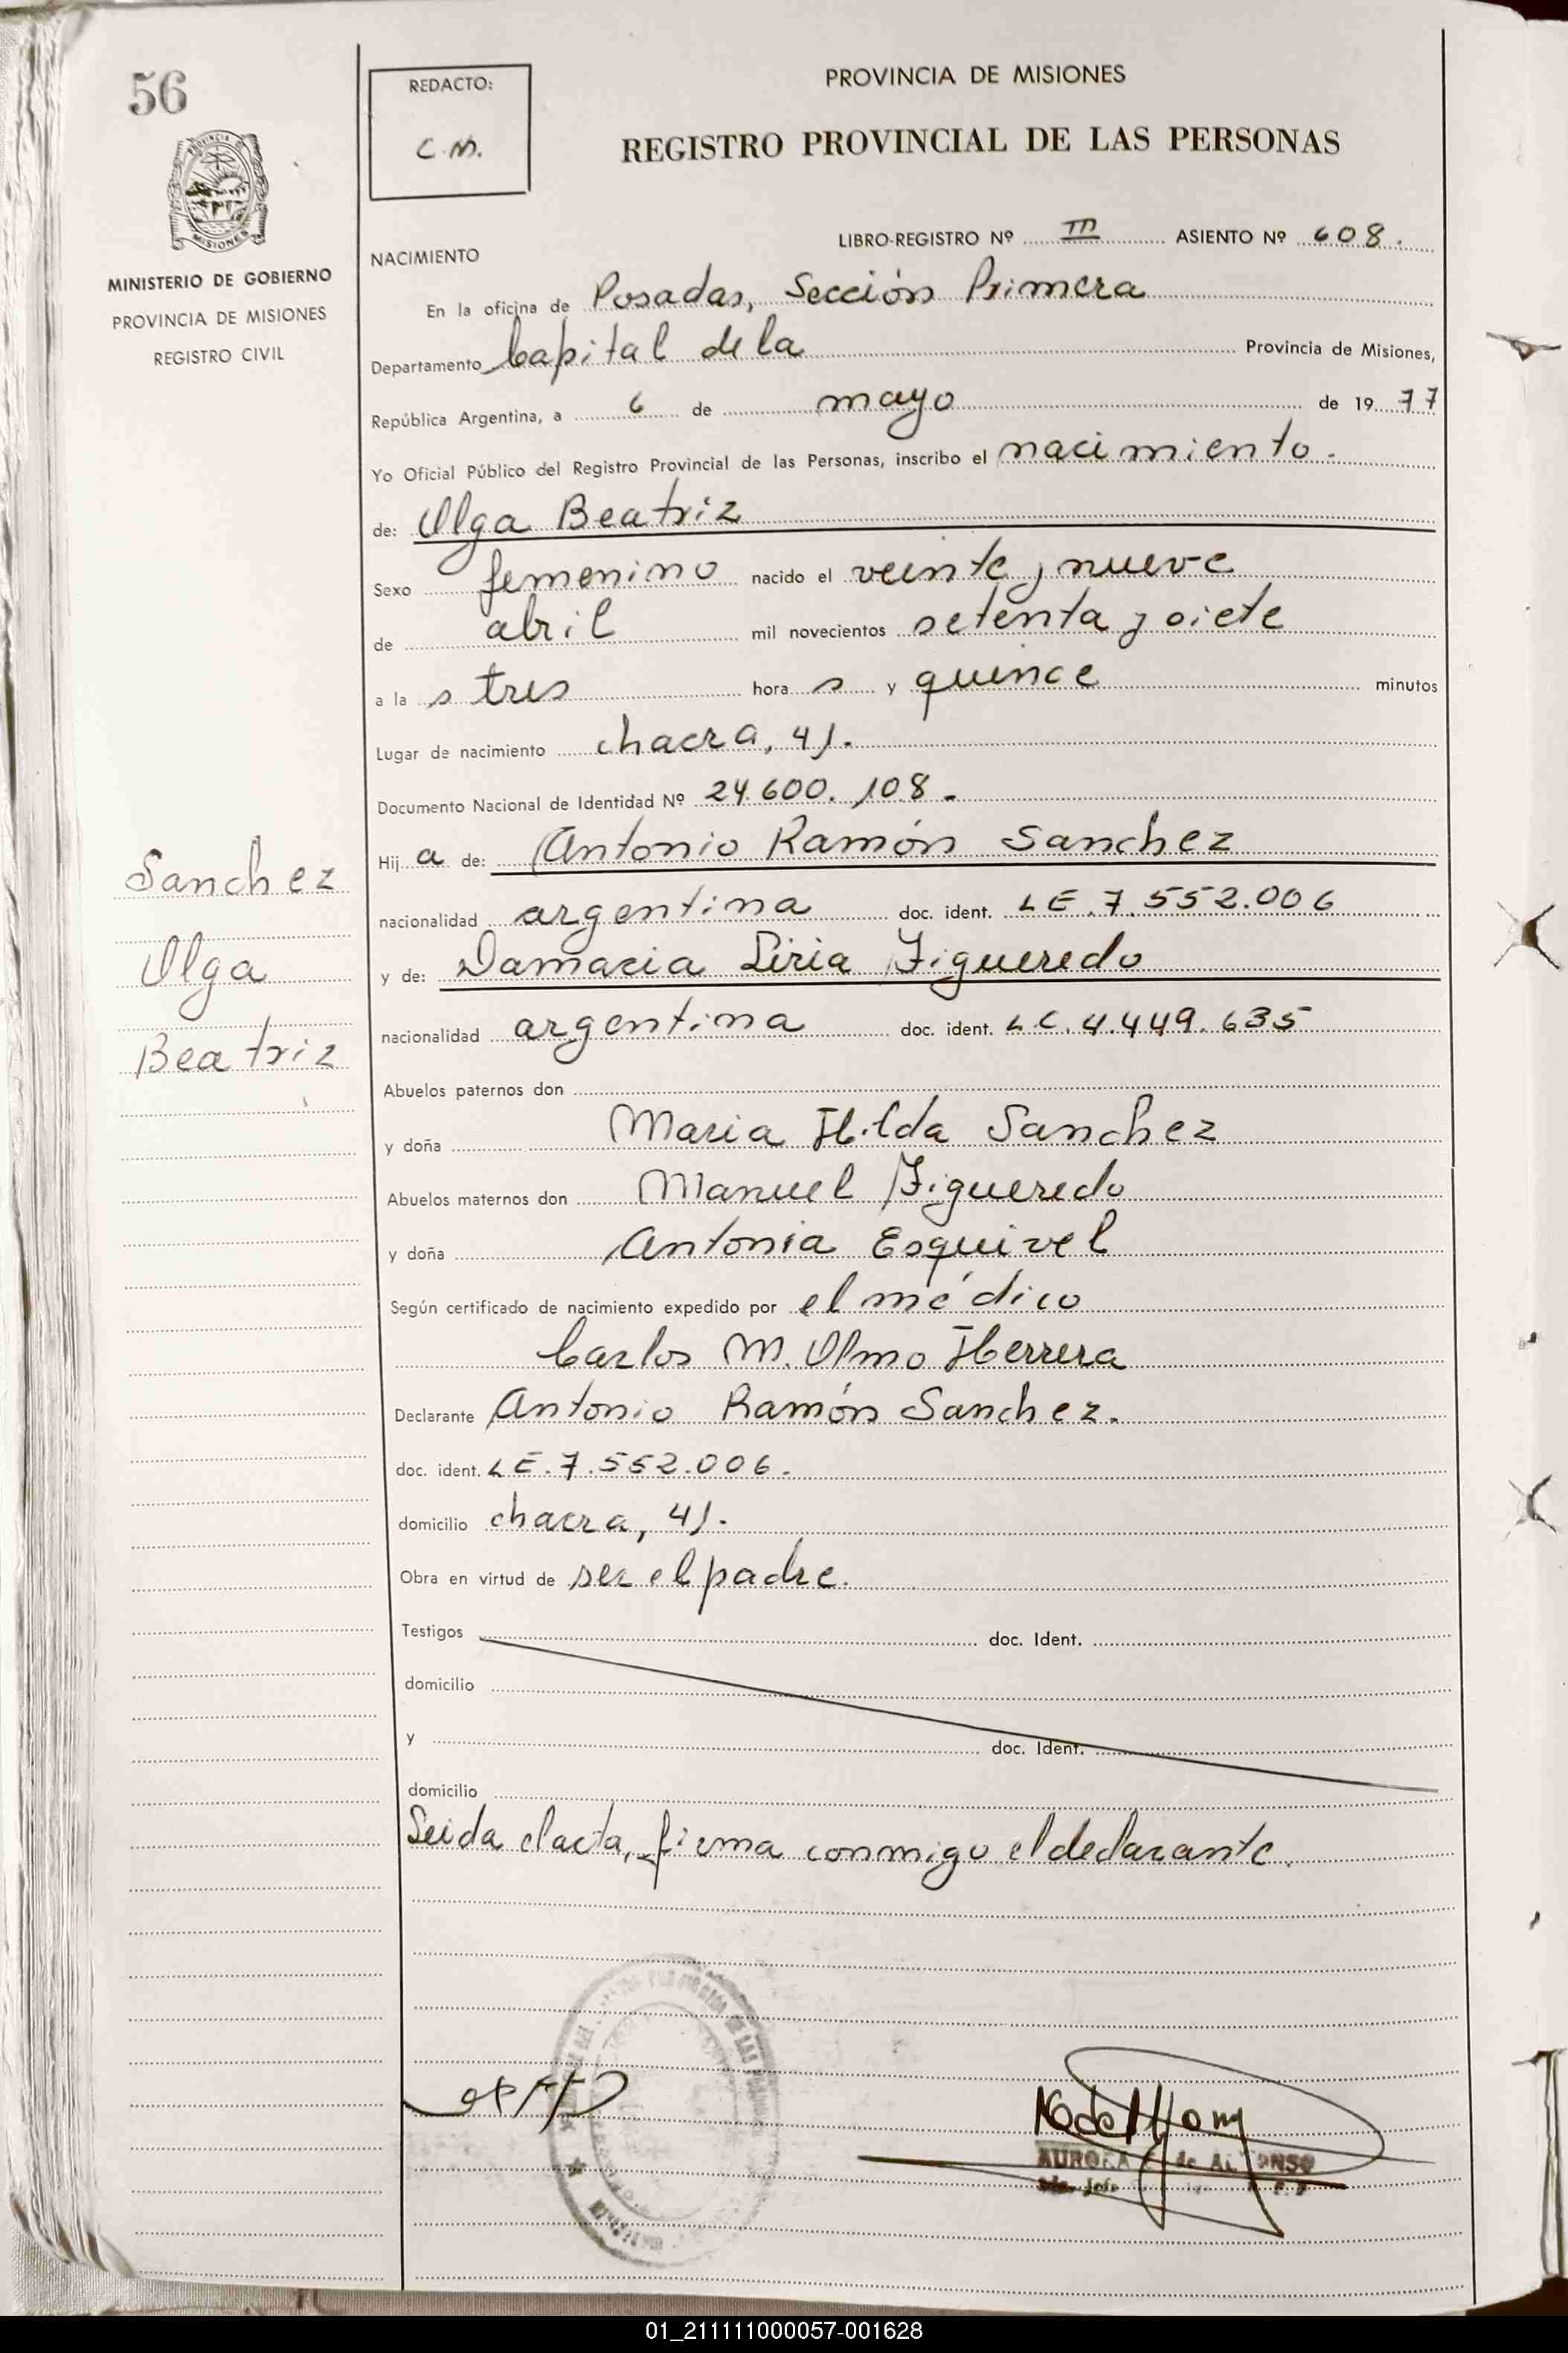 56
REDACTO:
C.M.
PROVINCIA DE MISIONES
REGISTRO PROVINCIAL DE LAS PERSONAS
PROVINCIA
MISIONES
MINISTERIO DE GOBIERNO
PROVINCIA DE MISIONES
REGISTRO CIVIL
LIBRO-REGISTRO Nº III ASIENTO Nº 608.
NACIMIENTO
En la oficina de Posadas, Sección Primera
Departamento Capital de la Provincia de Misiones,
República Argentina, a 6 de mayo de 1977
Yo Oficial Público del Registro Provincial de las Personas, inscribo el nacimiento.
de: Olga Beatriz
Sexo femenino nacido el veinte y nueve
de abril mil novecientos setenta y siete
a la s tres hora s y quince minutos
Lugar de nacimiento chacra, 41.
Documento Nacional de Identidad Nº 24.600.108.
Hij a de: Antonio Ramón Sanchez
nacionalidad argentina doc. ident. LE.7.552.006
y de: Damacia Liria Figueredo
nacionalidad argentina doc. ident. LC.4.449.635
Abuelos paternos don
y doña Maria Hilda Sanchez
Abuelos maternos don Manuel Figueredo
y doña Antonia Esquivel
Según certificado de nacimiento expedido por el médico
Carlos M. Olmo Herrera
Declarante Antonio Ramón Sanchez.
doc. ident. LE.7.552.006.
domicilio chacra, 41.
Obra en virtud de ser el padre.
Testigos doc. Ident.
domicilio
y doc. Ident.
domicilio
Leida el acta, firma conmigo el declarante.
Sanchez
Olga
Beatriz
AURORA de ALFONSO
01_211111000057-001628